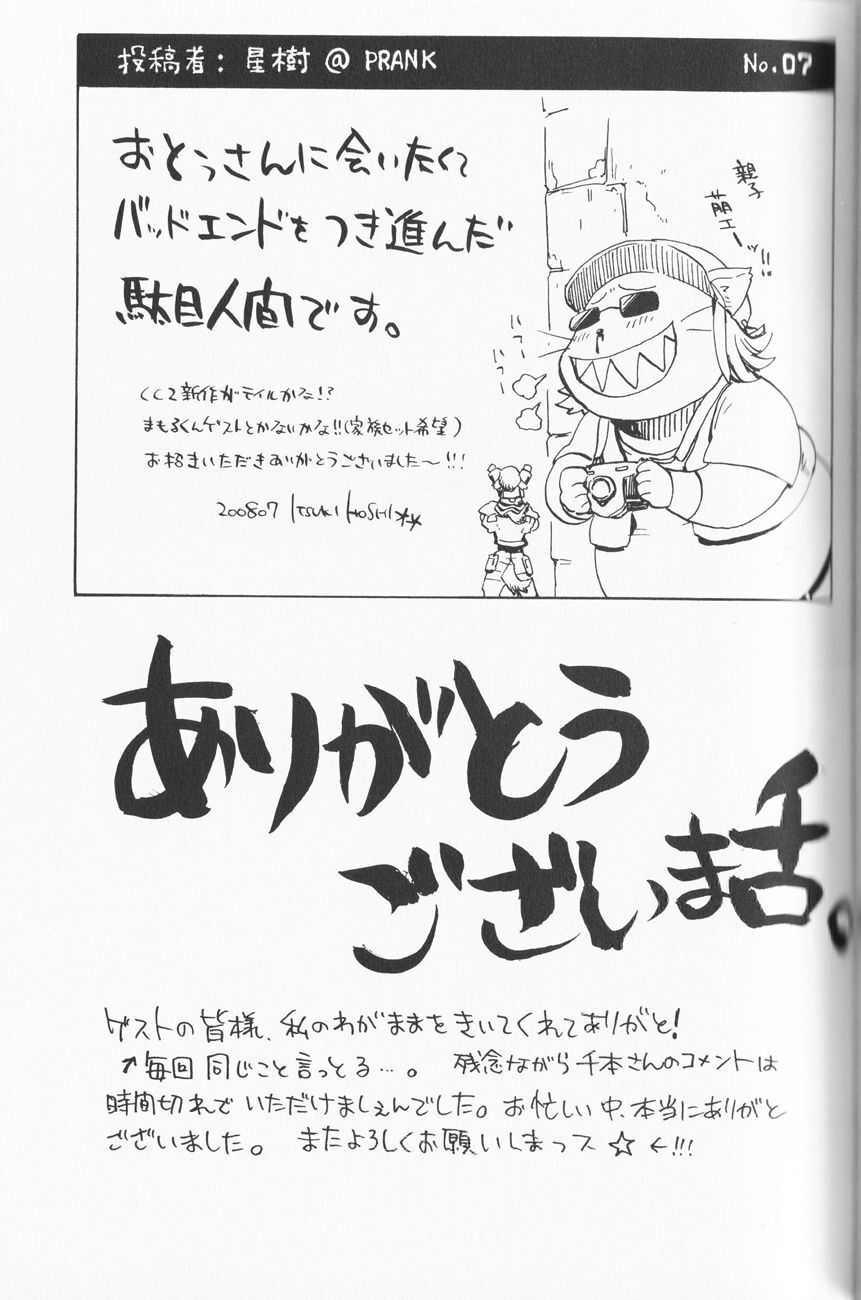 投稿者: 星樹 @ PRANK
No.07
おとうさんに会いたくて
バッドエンドをつき進んだ
駄目人間です。
親子
萌エーッ!!
CC2新作がテイルかな!?
まもるくんゲストとかないかな!!(家族セット希望)
お招きいただきありがとうございました〜!!!
200807 ITSUKI HOSHI
ありがとう
ございま舌。
ゲストの皆様、私のわがままをきいてくれてありがと!
↑毎回同じこと言っとる…。 残念ながら千本さんのコメントは
時間切れでいただけましぇんでした。お忙しい中、本当にありがと
ございました。 またよろしくお願いしまっス☆←!!!